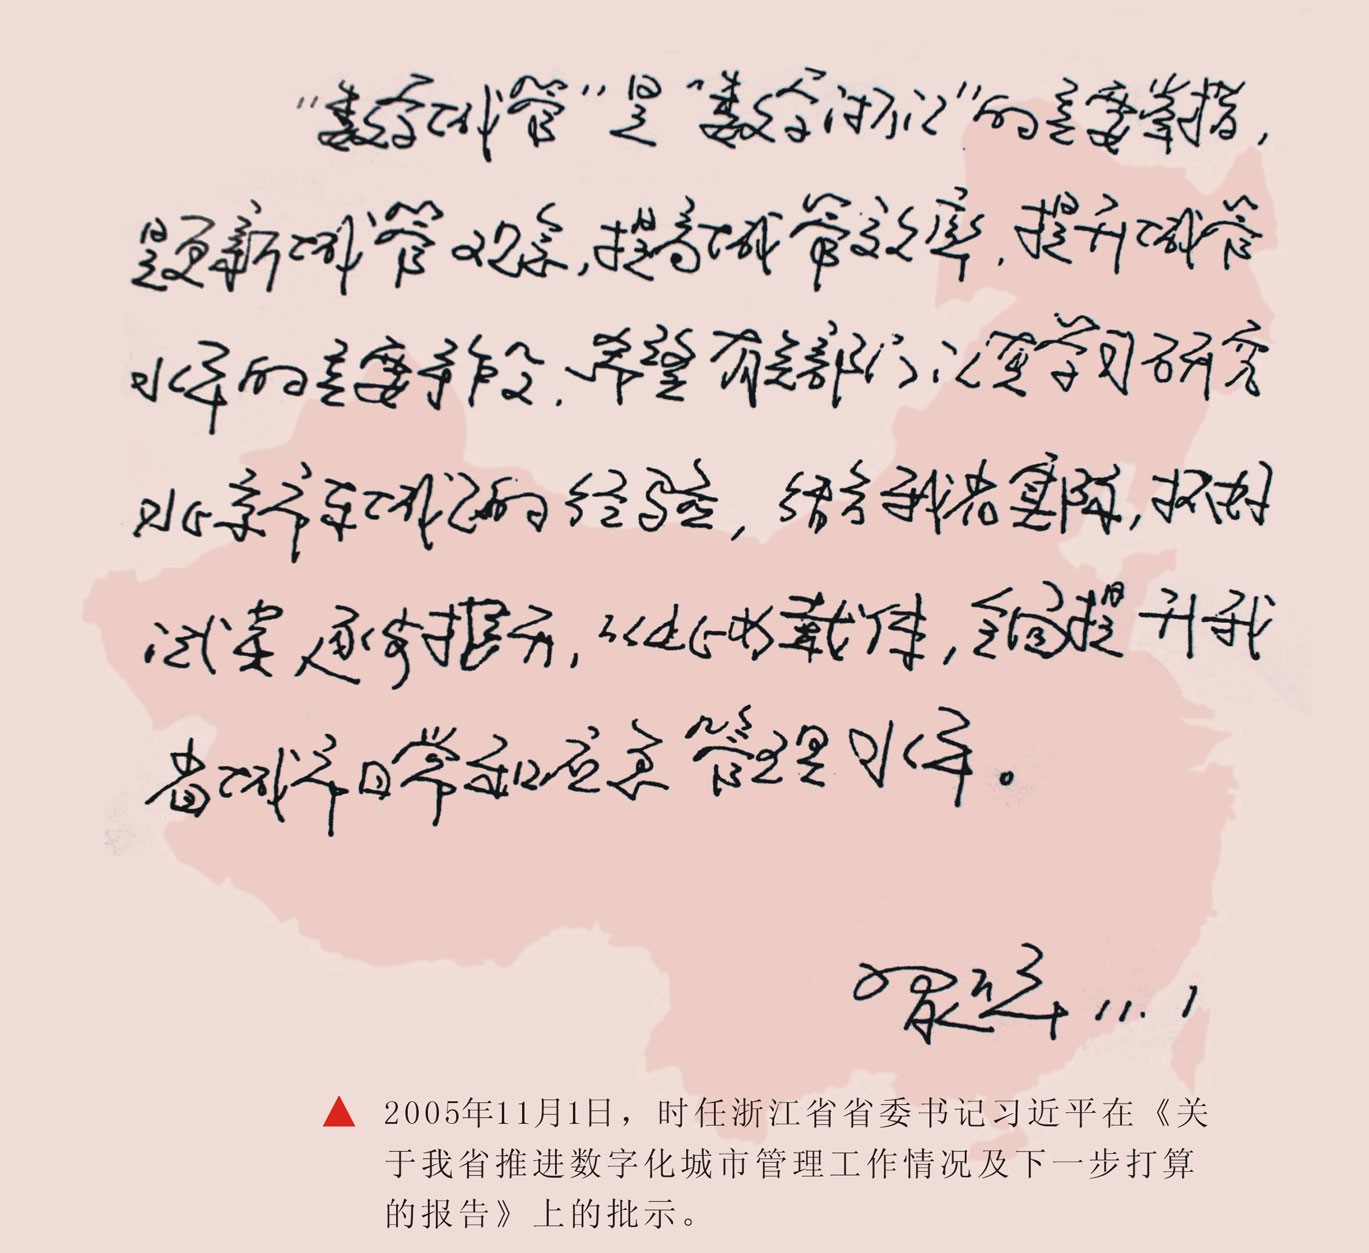 “数字城管”是“数字浙江”的重要举措，
是更新城管观念，提高城管效率，提升城管
水平的重要手段．希望有关部门认真学习研究
北京市东城区的经验，结合我省实际，抓好
试点 逐步推开，以此为载体，全面提升我
省城市日常和应急管理水平。
习近平 11.1
▲ 2005年11月1日，时任浙江省省委书记习近平在《关
于我省推进数字化城市管理工作情况及下一步打算
的报告》上的批示。